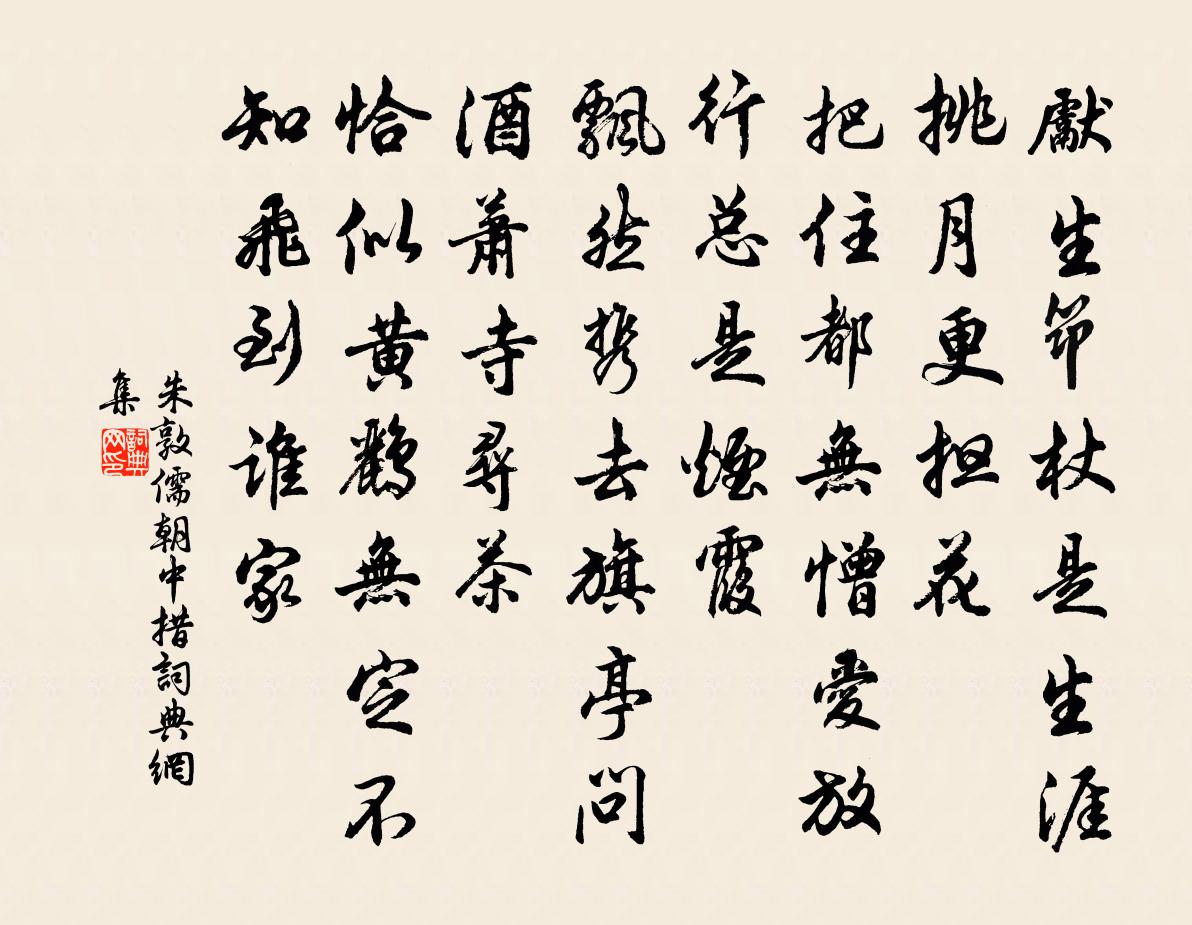 獻生筇杖是生涯
挑月更担花
把住都無憎愛放
行总是煙霞
飄然携去旗亭问
酒蕭寺尋茶
恰似黄鸝無定不
知飛到誰家
朱敦儒朝中措詞典網
集
詞典
网印